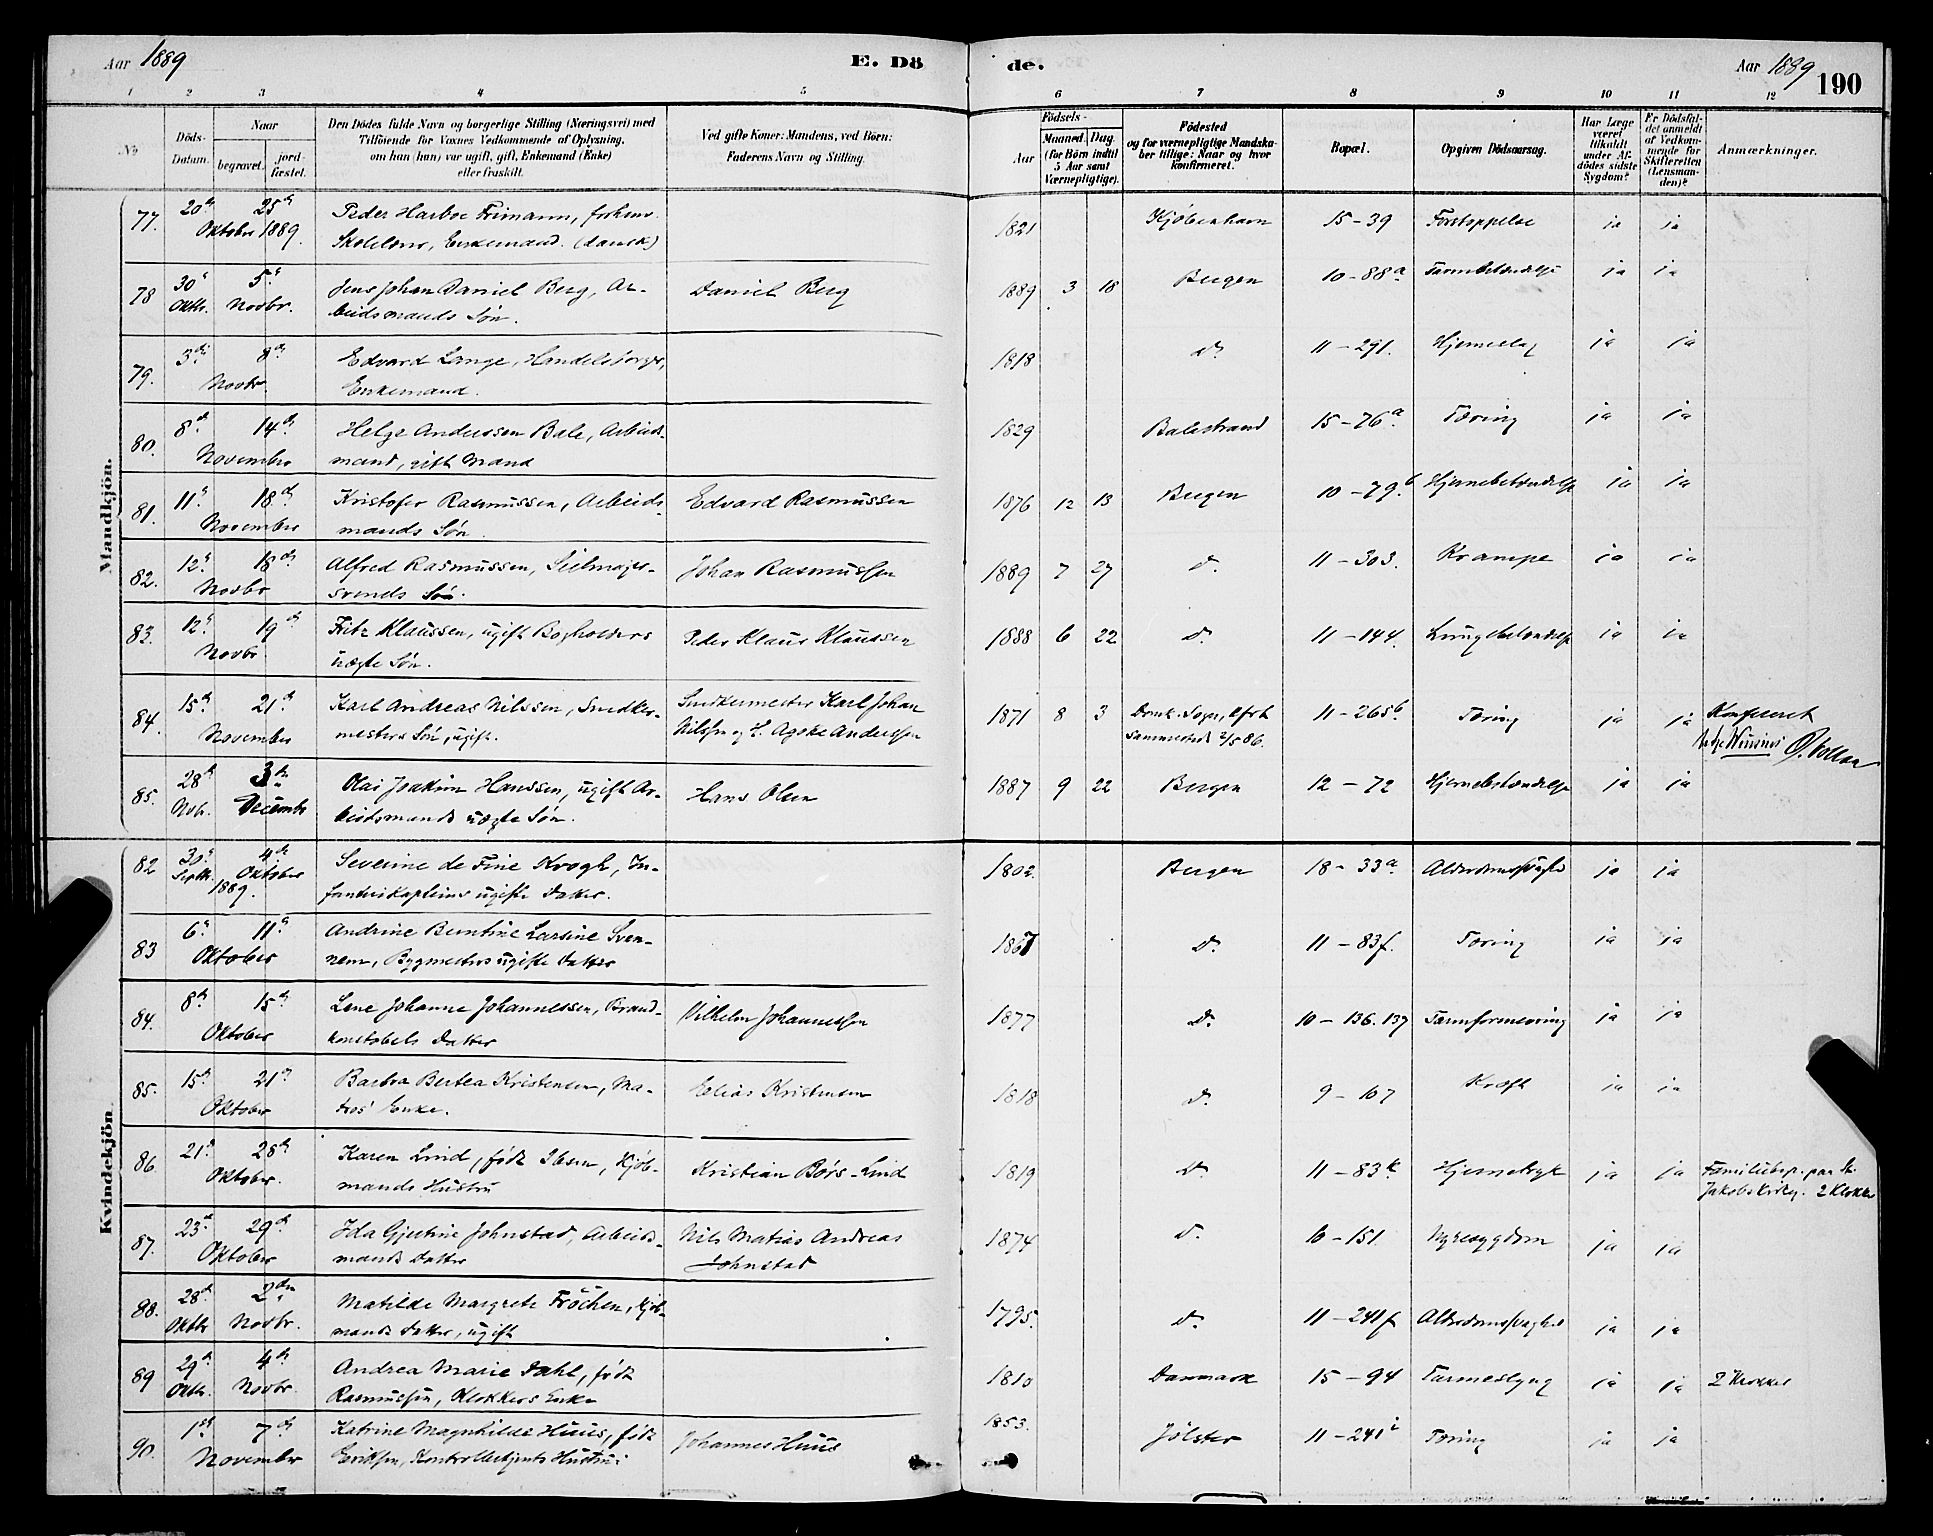 Aar 1889 E. Dö de. Aar 1889 190
1 2 3 4 5 6 7 8 9 10 11 12
No
Döds-Datum.
Naar
begravet.
jord-fæstet.
Den Dödes fulde Navn og borgerlige Stilling (Næringsvei) med
Tilföiende for Voxnes Vedkommende af Oplysning,
om han (hun) var ugift, gift, Enkemand (Enke)
eller fraskilt.
Ved gifte Koner: Mandens, ved Börn:
Faderens Navn og Stilling.
Födsels-
Aar
Maaned. Dag.
(for Börn indtil
5 Aar samt
Værnepligtige).
Födested
og for værnepligtige Mandska-
ber tillige: Naar og hvor
konfirmeret.
Bopæl.
Opgiven Dödsaarsag.
Har Læge
været
tilkaldt
under Af-
dödes sidste
Sygdom?
Er Dödsfal-
det anmeldt
af Vedkom-
mende for
Skifteretten
(Lensman-
den)?
Anmærkninger.
Mandkjön.
77. 20de 25de Peder Harboe Frimann, forhenv. 1821 Kjöbenhavn 15-39 Forstoppelse ja ja
Oktober 1889. Skolelærer, Enkemand. (dansk)
78 30te 5te Jens Johan Daniel Berg, Ar- Daniel Berg 1889 3 18 Bergen 10-88a Tarmbetændelse ja ja
Oktbr. Novbr. beidsmands Sön.
79. 3die 8de Edvard Lange, Handelsborger, 1818 do. 11-291. Hjerneslag ja ja
Novbr. Enkemand.
80. 8de 14de Helge Anderssen Bale, Arbeids- 1829 Balestrand 15-76a Tæring ja ja
November mand, gift Mand
81. 11te 18de Kristofer Rasmussen, Arbeids- Edvard Rasmussen 1876 12 13 Bergen 10-79b Hjernebetændelse ja ja
November mands Sön.
82. 12te 18de Alfred Rasmussen, Seilmager- Johan Rasmussen 1889 7 27 do. 11-303. Krampe ja ja
Novbr svends Sön.
83. 12te 19de Fritz Klaussen, ugift Bogholders Peder Klaus Klaussen 1888 6 22 do. 11-144. Lungebetændelse ja ja
Novbr uægte Sön.
84. 15de 21de Karl Andreas Nilssen, Snedker- Snedkermester Karl Johan 1871 8 3 Domk. Sogn, Konf. 11-265b. Tæring ja ja Konfereret
November mesters Sön, ugift. Nilssen og H. Anderssen sammesteds 2/5 86.
85. 28de 3die Olai Joakim Hanssen, ugift Ar- Hans Olsen 1887 9 22 Bergen 12-72 Hjernebetændelse ja ja
Nvbr. December beidsmands uægte Sön.
Kvindekjön.
82 30te 4de Severine de Fine Krogh, In- 1802. Bergen 18-33a Alderdomssvaghed ja ja
Septbr. Oktober 1889. fanterikapteins ugifte Datter.
83 6te 11te Andrine Berntine Larsine Sven- 1867 do. 11-83f. Tæring ja ja
Oktober nem, Bygmesters ugifte Datter
84. 8de 15de Lene Johanne Johannessen, Brand- Vilhelm Johannessen 1877 do. 10-136.137 Tarmforsnevring ja ja
Oktober konstabels Datter
85. 15de 21de Barbra Bertea Kristensen, Ma- Elias Kristensen 1818 do. 9-107 Kræft ja ja
Oktober tros' Enke.
86. 21de 28de Karen Lind, födt Ibsen, Kjöb- Kristian Börs-Lind 1819 do. 11-83k Hjernetryk ja ja Familiebegr. paa St.
Oktober. mands Hustru Jakobs Kirkeg. 2 Klokker
87. 23de 29de Ida Gjertine Johnstad, Arbeids- Nils Matias Andreas 1874 do. 16-151 Nyresygdom ja ja
Oktober mands Datter Johnstad
88. 28de 2den Matilde Margrete Fröchen, Kjöb- 1795. do. 11-241f Alderdomssvaghed ja ja
Oktbr Novbr. mands Datter, ugift
89 29de 4de Andrea Marie Dahl, födt 1810 Danmark 15-94 Tarmeslyng ja ja 2 Klokker
Oktbr. Novbr. Rasmussen, Klokkers Enke
90. 1ste 7de Katrine Magnhilde Huus, födt Johannes Huus 1853. Jölster 11-241i Tæring ja ja
November Eriksen, Kontorbetjents Hustru